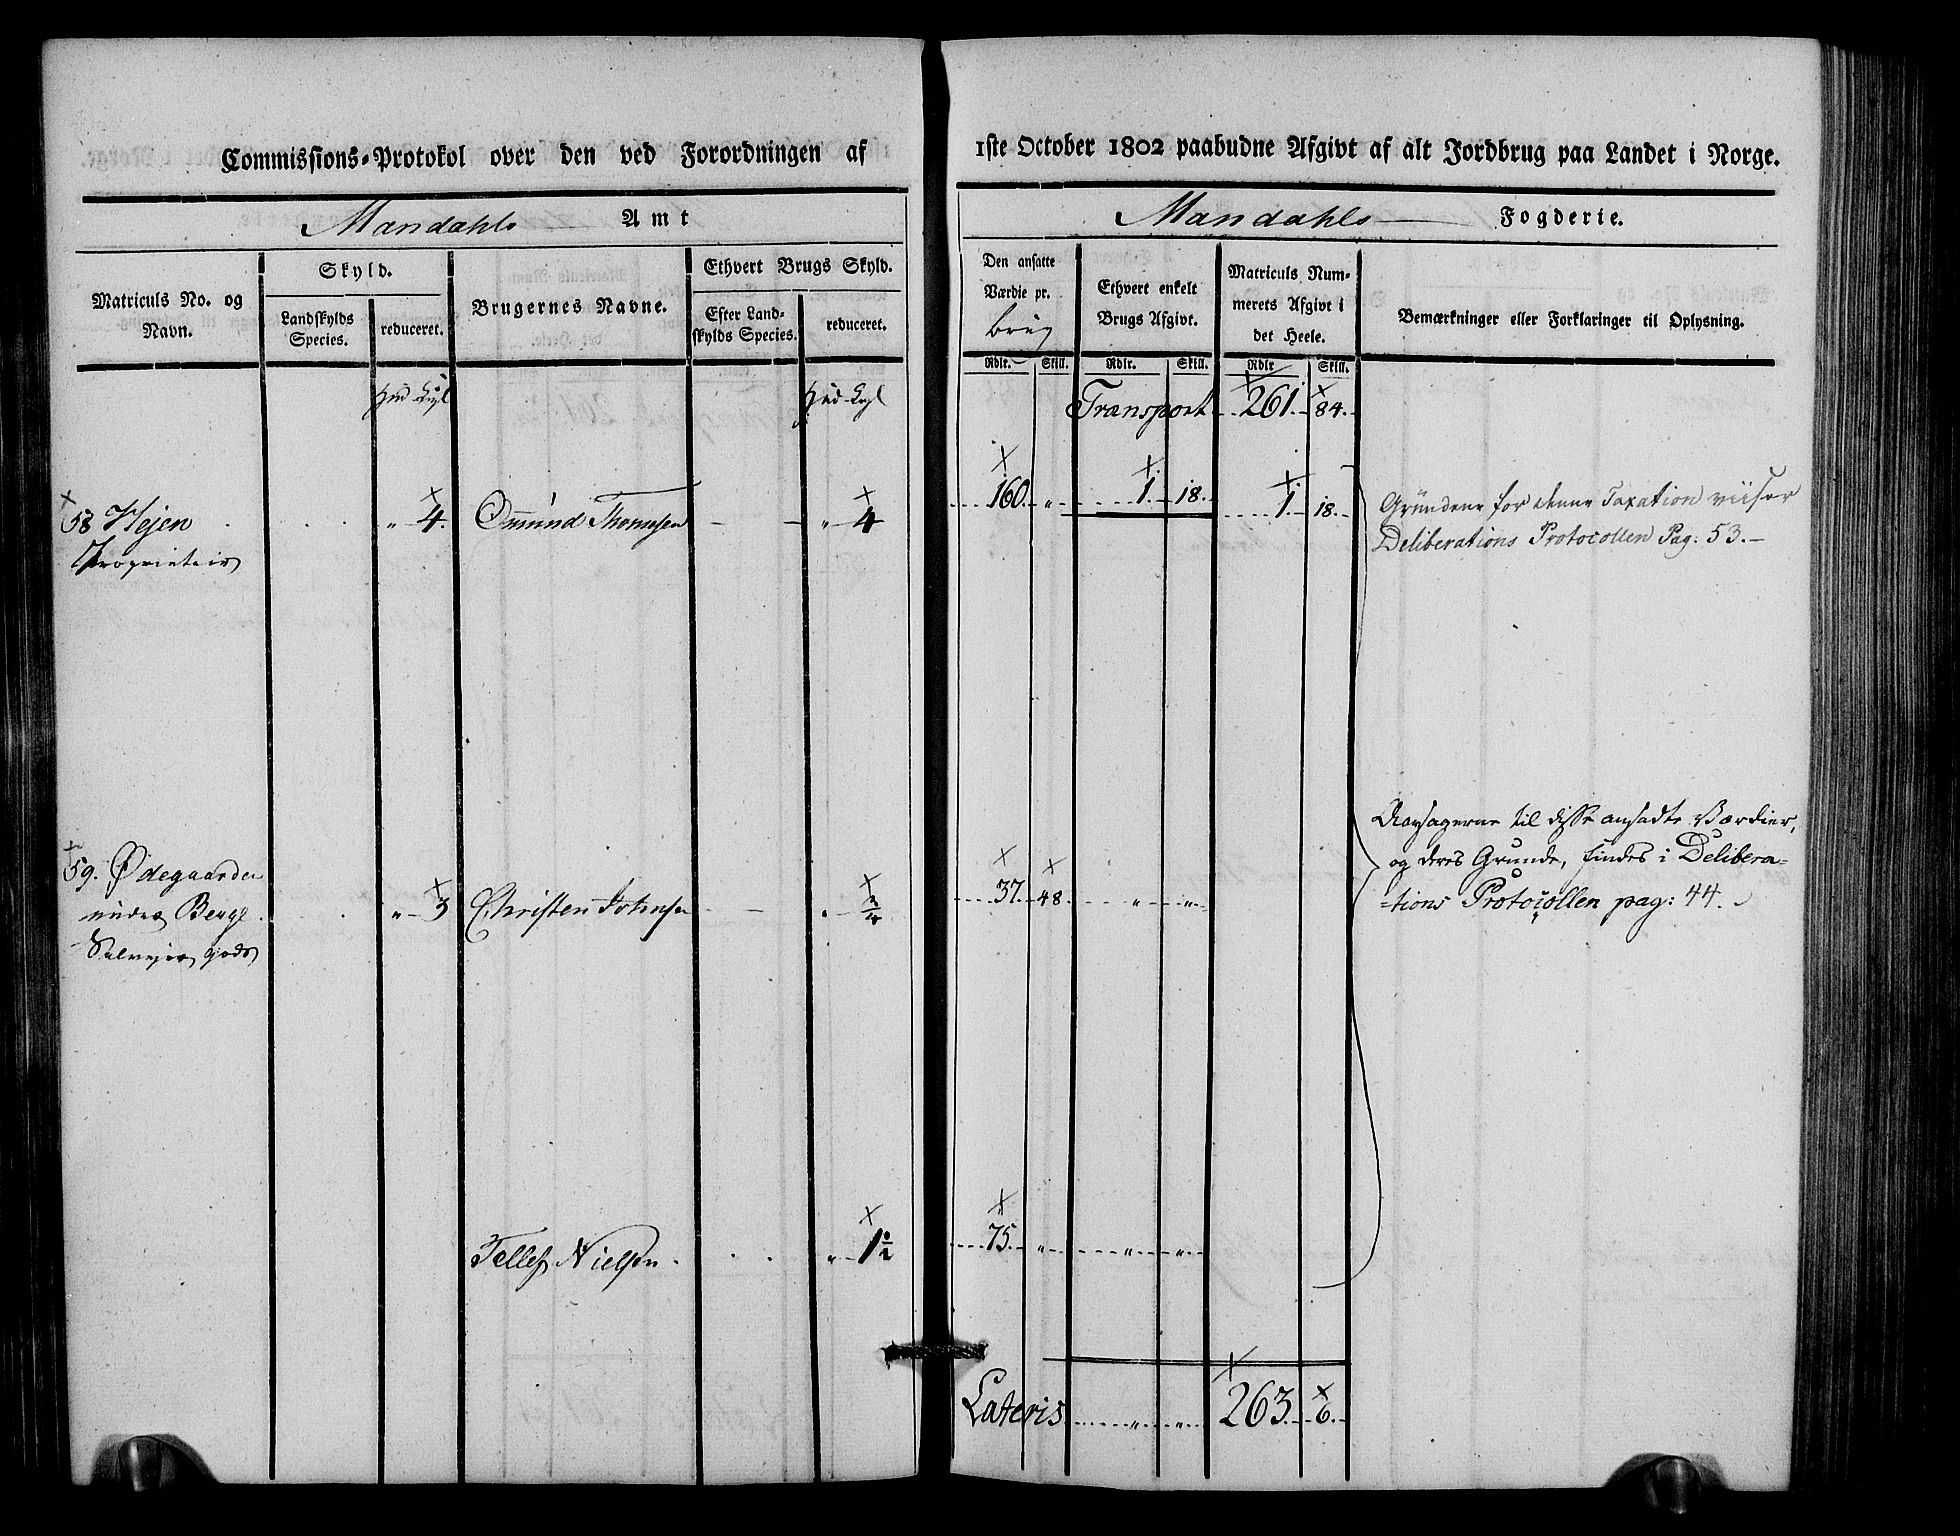 Commissions-Protokol over den ved Forordningen af
1ste October 1802 paabudne Afgivt af alt Jordbrug paa Landet i Norge.
Mandahls Amt
Mandahls Fogderie.
Matriculs No. og Navn.
Skyld.
Landskylds Species.
reduceret.
Brugernes Navne.
Ethvert Brugs Skyld.
Efter Land-
skylds Species.
reduceret.
Den ansatte
Værdie pr.
brug
Rdlr. Skill.
Ethvert enkelt
Brugs Afgivt.
Rdlr. Skill.
Matriculs Num-
merets Afgivt i
det Heele.
Rdlr Skill.
Bemærkninger eller Forklaringer til Oplysning.
Hud
Hud
Transport 261. 84.
58 Hejen " 4. Omund Thomsen " 4 160. " 1. 18. 1. 18.
Proprietair
Grundene for denne Taxation viiser
Deliberations Protocollen Pag: 53.
59. Ødegaarden
under Berge " 3 Christen Johnsen " 37. 48 " "
Selvejer gods
Aarsagerne til disse ansadte Værdier,
og deres Grunde, findes i Delibera-
-tions Protocollen pag: 44.
Tellef Nielsen. " 1 1/2 75. " " "
Lateris " " 263. 6.